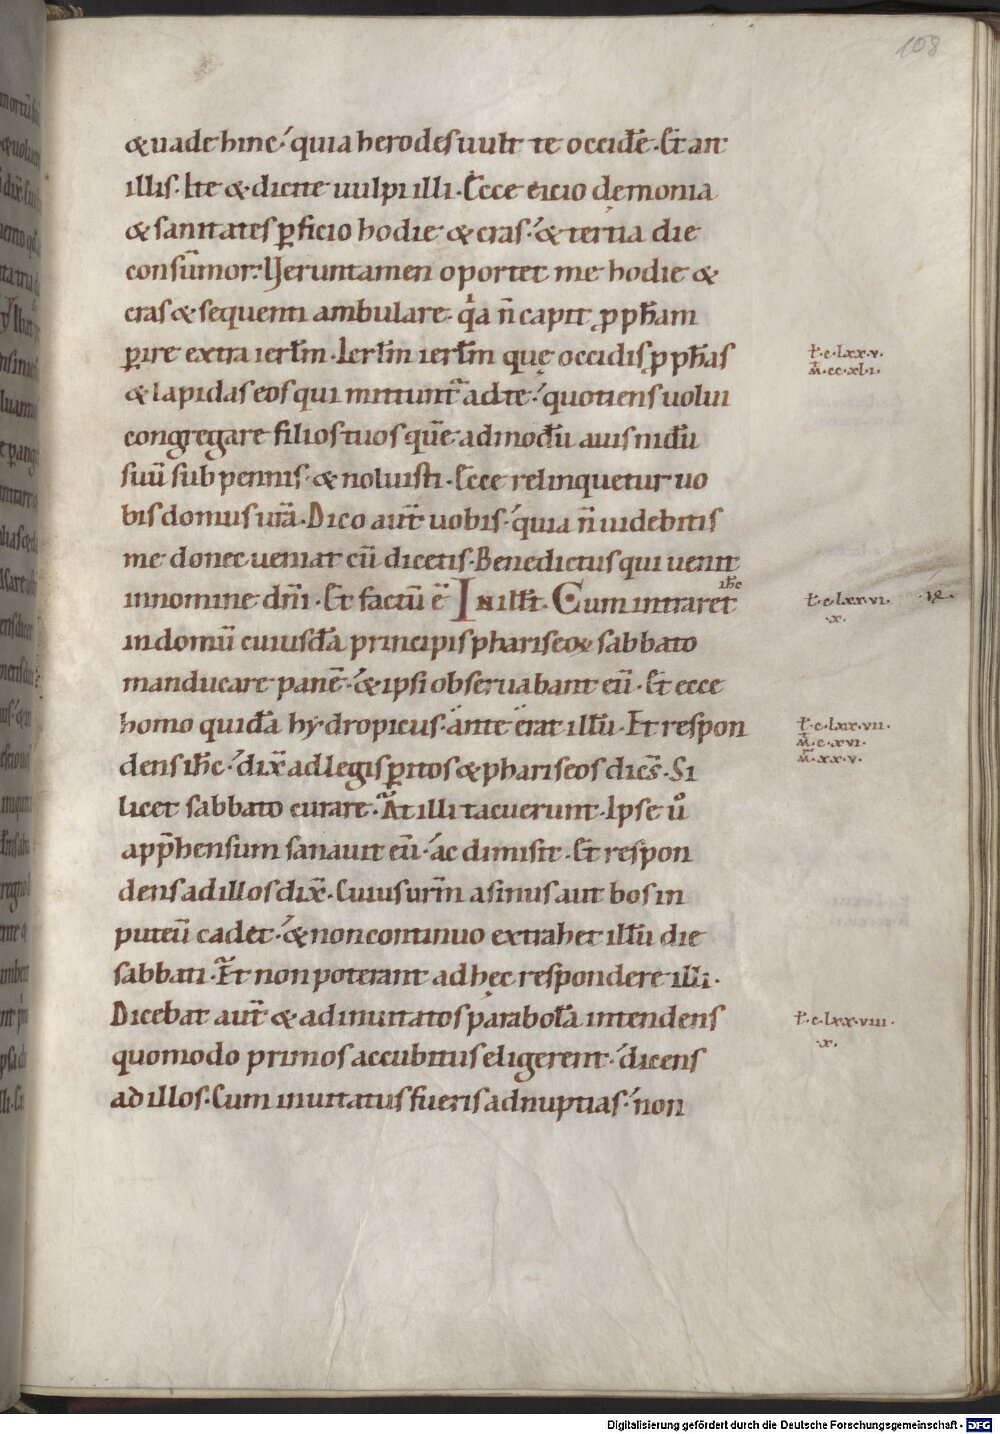 108
& uade hinc · quia herodes uult te occidẽ · Et ait
illis · Ite & dicite uulpi illi · Ecce eicio demonia
& sanitates ꝑficio hodie & cras · & tertia die
consũmor · Ueruntamen oportet me hodie &
cras & sequenti ambulare · qͣa ñ capit ꝓpħam
ꝑire extra ierłm · Ierłm ierłm quę occidis ꝓpħas
& lapidas eos qui mittunt̃ ad te · quotiens uolui
congregare filios tuos quẽ admodũ auis nidũ
suũ sub pennis · & noluisti · Ecce relinquetur uo
bis domus ur̃a · Dico aut̃ uobis · quia ñ uidebitis
me donec ueniat cũ dicetis · Benedictus qui uenit
in nomine dñi · Et factũ ẽ In illł̃ · Cum intraret ihc̃
in domũ cuiusdã principis phariseoꝝ sabbato
manducare panẽ · & ipsi obseruabant eũ · Et ecce
homo quidã hydropicus · ante erat illũ · Et respon
dens ihc̃ · dix̃ ad legis ꝑitos & phariseos dicẽs · Si
licet sabbato curare · At illi tacuerunt · Ipse uͦ
app̃hensum sanauit eũ · ac dimisit · Et respon
dens ad illos dix̃ · Cuius ur̃m asinus aut bos in
puteũ cadet · & non continuo extrahet illũ die
sabbati · Et non poterant ad hęc respondere illi ·
Dicebat aut̃ & ad inuitatos parabolã intendens
quomodo primos accubitus eligerent · dicens
ad illos · Cum inuitatus fueris ad nuptias · non
ł · c · lxx · v ·
M̃ · cc · xl · i ·
ł · c · lxx · vi ·
· x ·
ł · c · lxx · vii ·
M̃ · c · xvi ·
M̃ · xx · v ·
ł · c · lxx · viii ·
· x ·
Digitalisierung gefördert durch die Deutsche Forschungsgemeinschaft - DFG